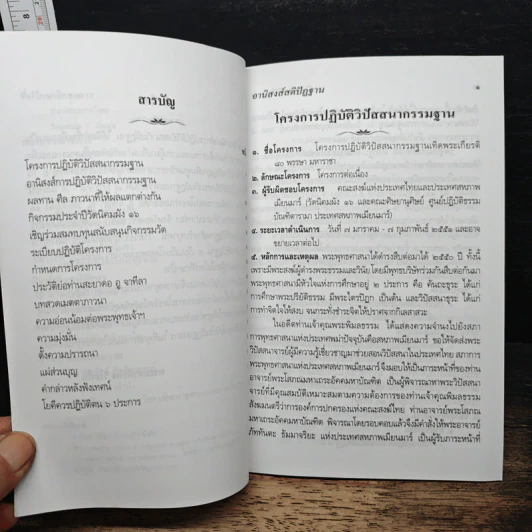 สารบัญ
โครงการปฏิบัติวิปัสสนากรรมฐาน
อานิสงส์การปฏิบัติวิปัสสนากรรมฐาน
ผลทาน ศีล ภาวนาที่ให้ผลแตกต่างกัน
กิจกรรมประจำปีวัดนิคมผัง ๑๖
เชิญร่วมสมทบทุนสนับสนุนกิจกรรมวัด
ระเบียบปฏิบัติโครงการ
กำหนดการโครงการ
ประวัติย่อท่านสะยาดอ อู จาทีลา
บทสวดเมตตาภาวนา
ความอ่อนน้อมต่อพระพุทธเจ้าฯ
ความมุ่งมั่น
ตั้งความปรารถนา
แผ่ส่วนบุญ
คำกล่าวหลังฟังเทศน์
โยคีควรปฏิบัติตน ๖ ประการ
อานิสงส์สติปัฏฐาน
๑
โครงการปฏิบัติวิปัสสนากรรมฐาน
๑. ชื่อโครงการ โครงการปฏิบัติวิปัสสนากรรมฐานเทิดพระเกียรติ
๘๐ พรรษา มหาราชา
๒. ลักษณะโครงการ โครงการต่อเนื่อง
๓. ผู้รับผิดชอบโครงการ คณะสงฆ์แห่งประเทศไทยและประเทศสหภาพ
เมียนมาร์ (วัดนิคมผัง ๑๖ และคณะศิษยานุศิษย์ ศูนย์ปฏิบัติธรรม
บัณฑิตารามา ประเทศสหภาพเมียนมาร์)
๔. ระยะเวลาดำเนินการ วันที่ ๗ มกราคม - ๗ กุมภาพันธ์ ๒๕๕๑ และอาจ
ขยายเวลาต่อไป
๕. หลักการและเหตุผล พระพุทธศาสนาได้ดำรงสืบต่อมาได้ ๒๕๕๐ ปี ทั้งนี้
เพราะมีพระสงฆ์ผู้ดำรงพระธรรมและวินัย โดยมีพุทธบริษัทร่วมกันสืบต่อกันมา
พระพุทธศาสนามีหัวใจแห่งการศึกษาอยู่ ๒ ประการ คือ คันถะธุระ ได้แก่
การศึกษาพระปริยัติธรรม มีพระไตรปิฎก เป็นต้น และวิปัสสนาธุระ ได้แก่
การทำจิตใจให้สงบ จนกระทั่งชำระจิตให้ปราศจากกิเลสาสวะ
ในอดีตท่านเจ้าคุณพระพิมลธรรม ได้แสดงความจำนงไปยังสภา
การพุทธศาสนาแห่งประเทศพม่าปัจจุบันคือสหภาพเมียนมาร์ ขอให้จัดส่งพระ
วิปัสสนาจารย์ผู้มีความรู้เชี่ยวชาญมาช่วยสอนวิปัสสนาในประเทศไทย สภาการ
พระพุทธศาสนาแห่งประเทศสหภาพเมียนมาร์จึงมอบให้เป็นภาระหน้าที่ของท่าน
อาจารย์พระโสภณมหาเถระอัคคมหาบัณฑิต เป็นผู้พิจารณาหาพระวิปัสสนา
จารย์ที่มีคุณสมบัติเหมาะสมตามความต้องการของท่านเจ้าคุณพิมลธรรม
สังฆมนตรีว่าการองค์การปกครองแห่งคณะสงฆ์ไทย ท่านอาจารย์พระโสภณ
มหาเถระอัคคมหาบัณฑิต พิจารณาโดยรอบคอบแล้วจึงมีคำสั่งให้พระอาจารย์
ภัททันตะ ธัมมาจริยะ แห่งประเทศสหภาพเมียนมาร์ เป็นผู้รับภาระหน้าที่